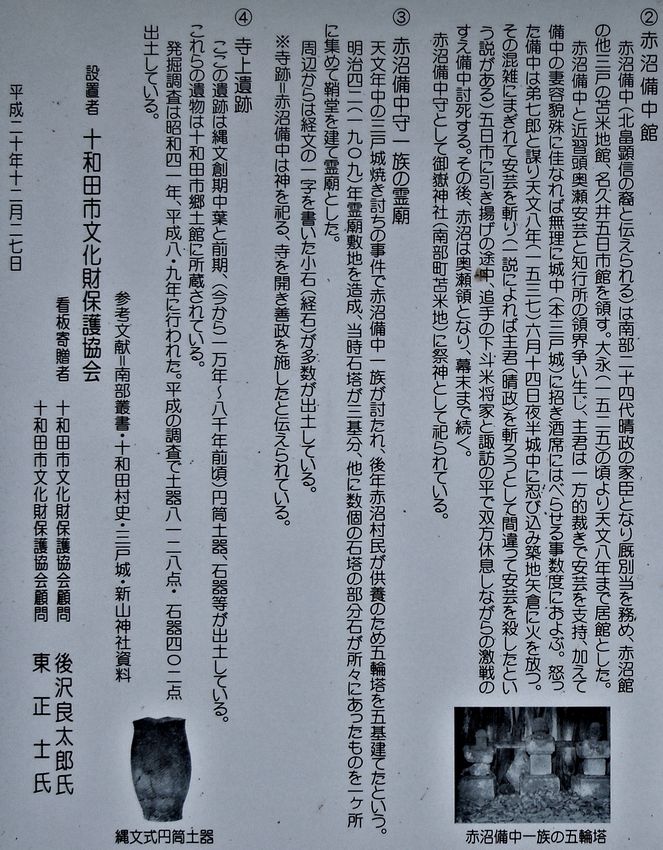 ②赤沼備中館
赤沼備中(北畠顕信の裔と伝えられる)は南部二十四代晴政の家臣となり厩別当を務め、赤沼館
の他三戸の苫米地館、名久井五日市館を領す。大永(一五二五)の頃より天文八年まで居館とした。
赤沼備中と近習頭奥瀬安芸と知行所の領界争い生じ、主君は一方的裁きで安芸を支持、加えて
備中の妻容貌殊に佳なれば無理に城中(本三戸城)に招き酒席にはべらせる事数度におよぶ。怒っ
た備中は弟七郎と謀り天文八年(一五三七)六月十四日夜半城中に忍び込み築地矢倉に火を放つ。
その混雑にまぎれて安芸を斬り(一説によれば主君(晴政)を斬ろうとして間違って安芸を殺したとい
う説がある)五日市に引き揚げの途中、追手の下斗米将家と諏訪の平で双方休息しながらの激戦の
すえ備中討死する。その後、赤沼は奥瀬領となり、幕末まで続く。
赤沼備中守として御嶽神社(南部町苫米地)に祭神として祀られている。
③赤沼備中守一族の霊廟
天文年中の三戸城焼き討ちの事件で赤沼備中一族が討たれ、後年赤沼村民が供養のため五輪塔を五基建てたという。
明治四二(一九〇九)年霊廟敷地を造成、当時石塔が三基分、他に数個の石塔の部分石が所々にあったものを一ヶ所
に集めて鞘堂を建て霊廟とした。
周辺からは経文の一字を書いた小石(経石)が多数が出土している。
※寺跡=赤沼備中は神を祀る、寺を開き善政を施したと伝えられている。
④寺上遺跡
ここの遺跡は縄文創期中葉と前期、(今から一万年~八千年前頃)円筒土器、石器等が出土している。
これらの遺物は十和田市郷土館に所蔵されている。
発掘調査は昭和四一年、平成八・九年に行われた。平成の調査で土器八一二八点・石器四〇二点
出土している。
参考文献=南部叢書・十和田村史・三戸城・新山神社資料
設置者 十和田市文化財保護協会
看板寄贈者 十和田市文化財保護協会顧問 後沢良太郎氏
十和田市文化財保護協会顧問 東正士氏
平成二十年十二月二七日
赤沼備中一族の五輪塔
縄文式円筒土器